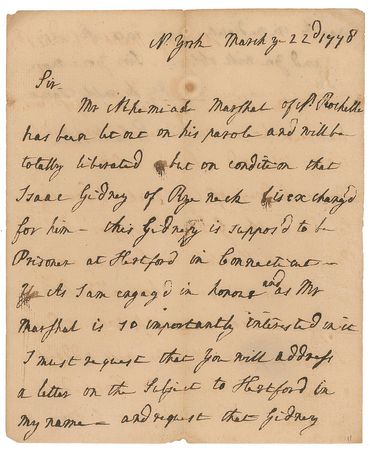 N. York March ye 22d 1778
Sir
Mr Nhemiah Marshal of N. Rochelle
has been let out on his parole and will be
totally liberated but on condition that
Isaac Gidney of Rye neck is exchang'd
for him — this Gidney is suppos'd to be
Prisoner at Hertford in Connecticut —
As I am engag'd in honour and as Mr
Marshal is so importantly interested in it
I must request that you will address
a letter on the Subject to Hertford in
my name — and request that Gidney